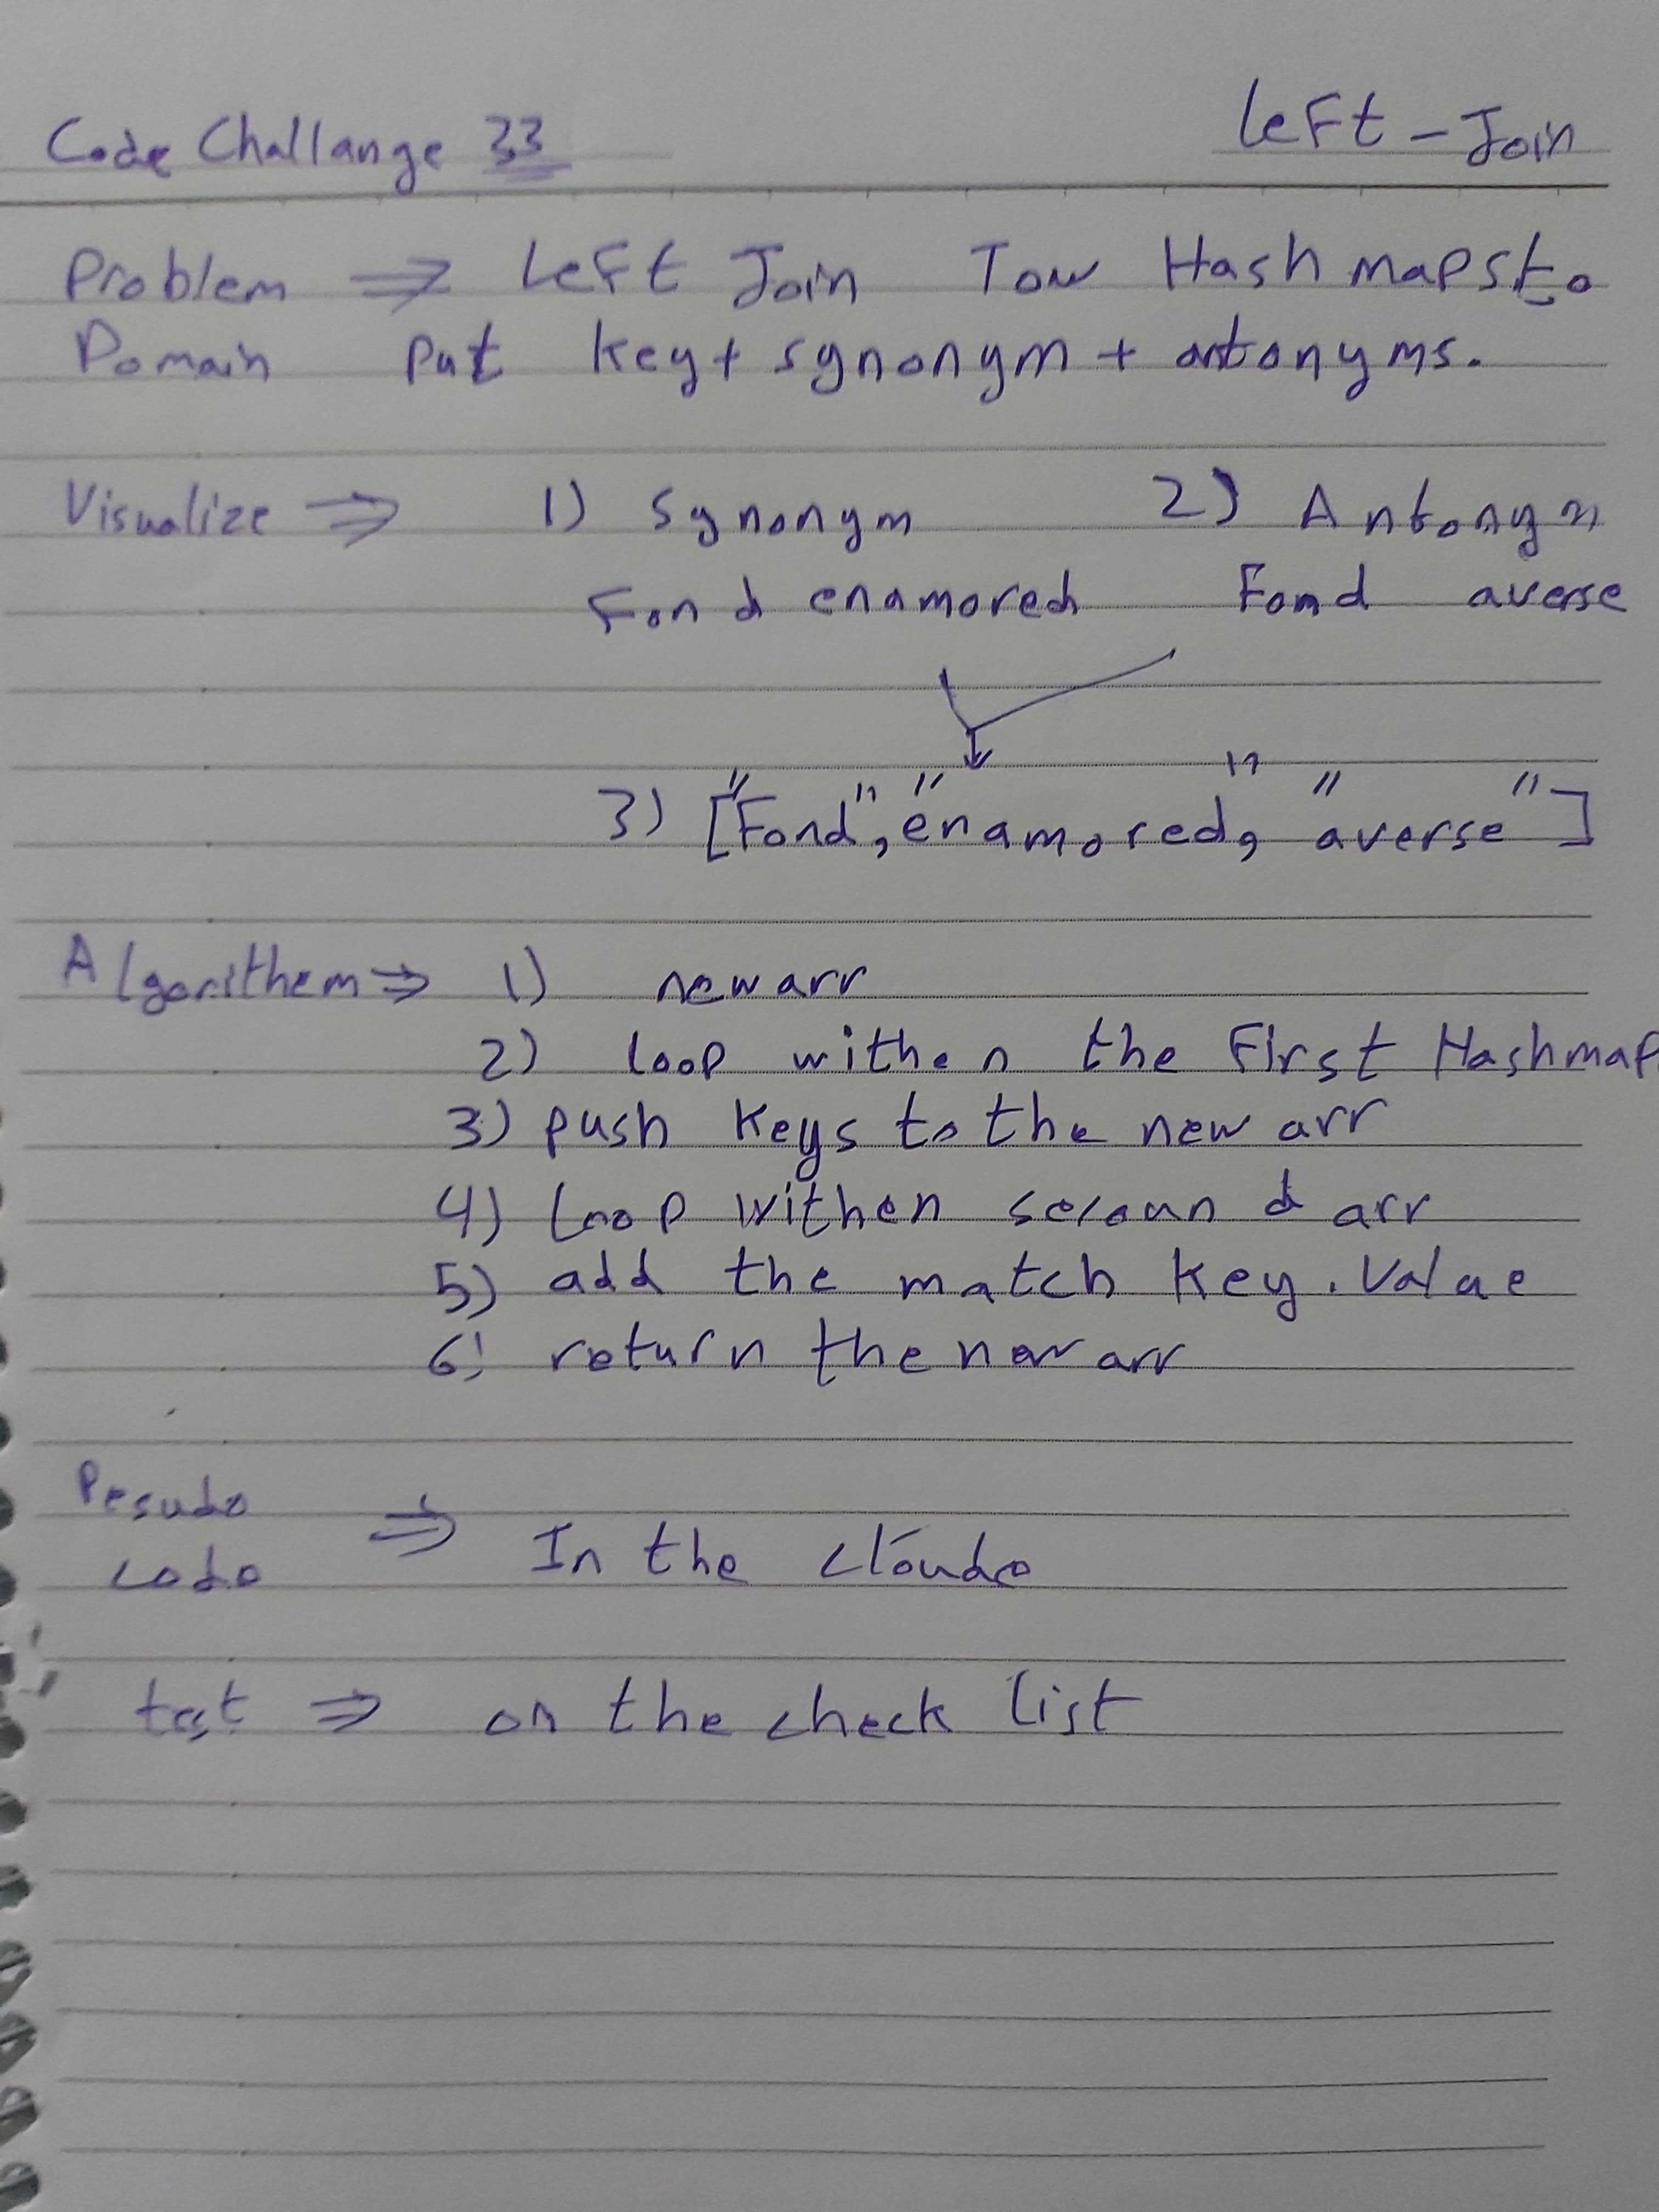 Code Challange 33 Left-Join
Problem ⇒ Left Join Tow Hashmaps to
Domain put key + synonym + antonyms.
Visualize ⇒ 1) synonym 2) Antonym
Fond enamored Fond averse
3) ["Fond", "enamored", "averse"]
Algorithem ⇒ 1) new arr
2) loop withen the First Hashmap
3) push keys to the new arr
4) Loop withen secound arr
5) add the match key.value
6) return the new arr
Pesudo
code ⇒ In the
test ⇒ on the check list